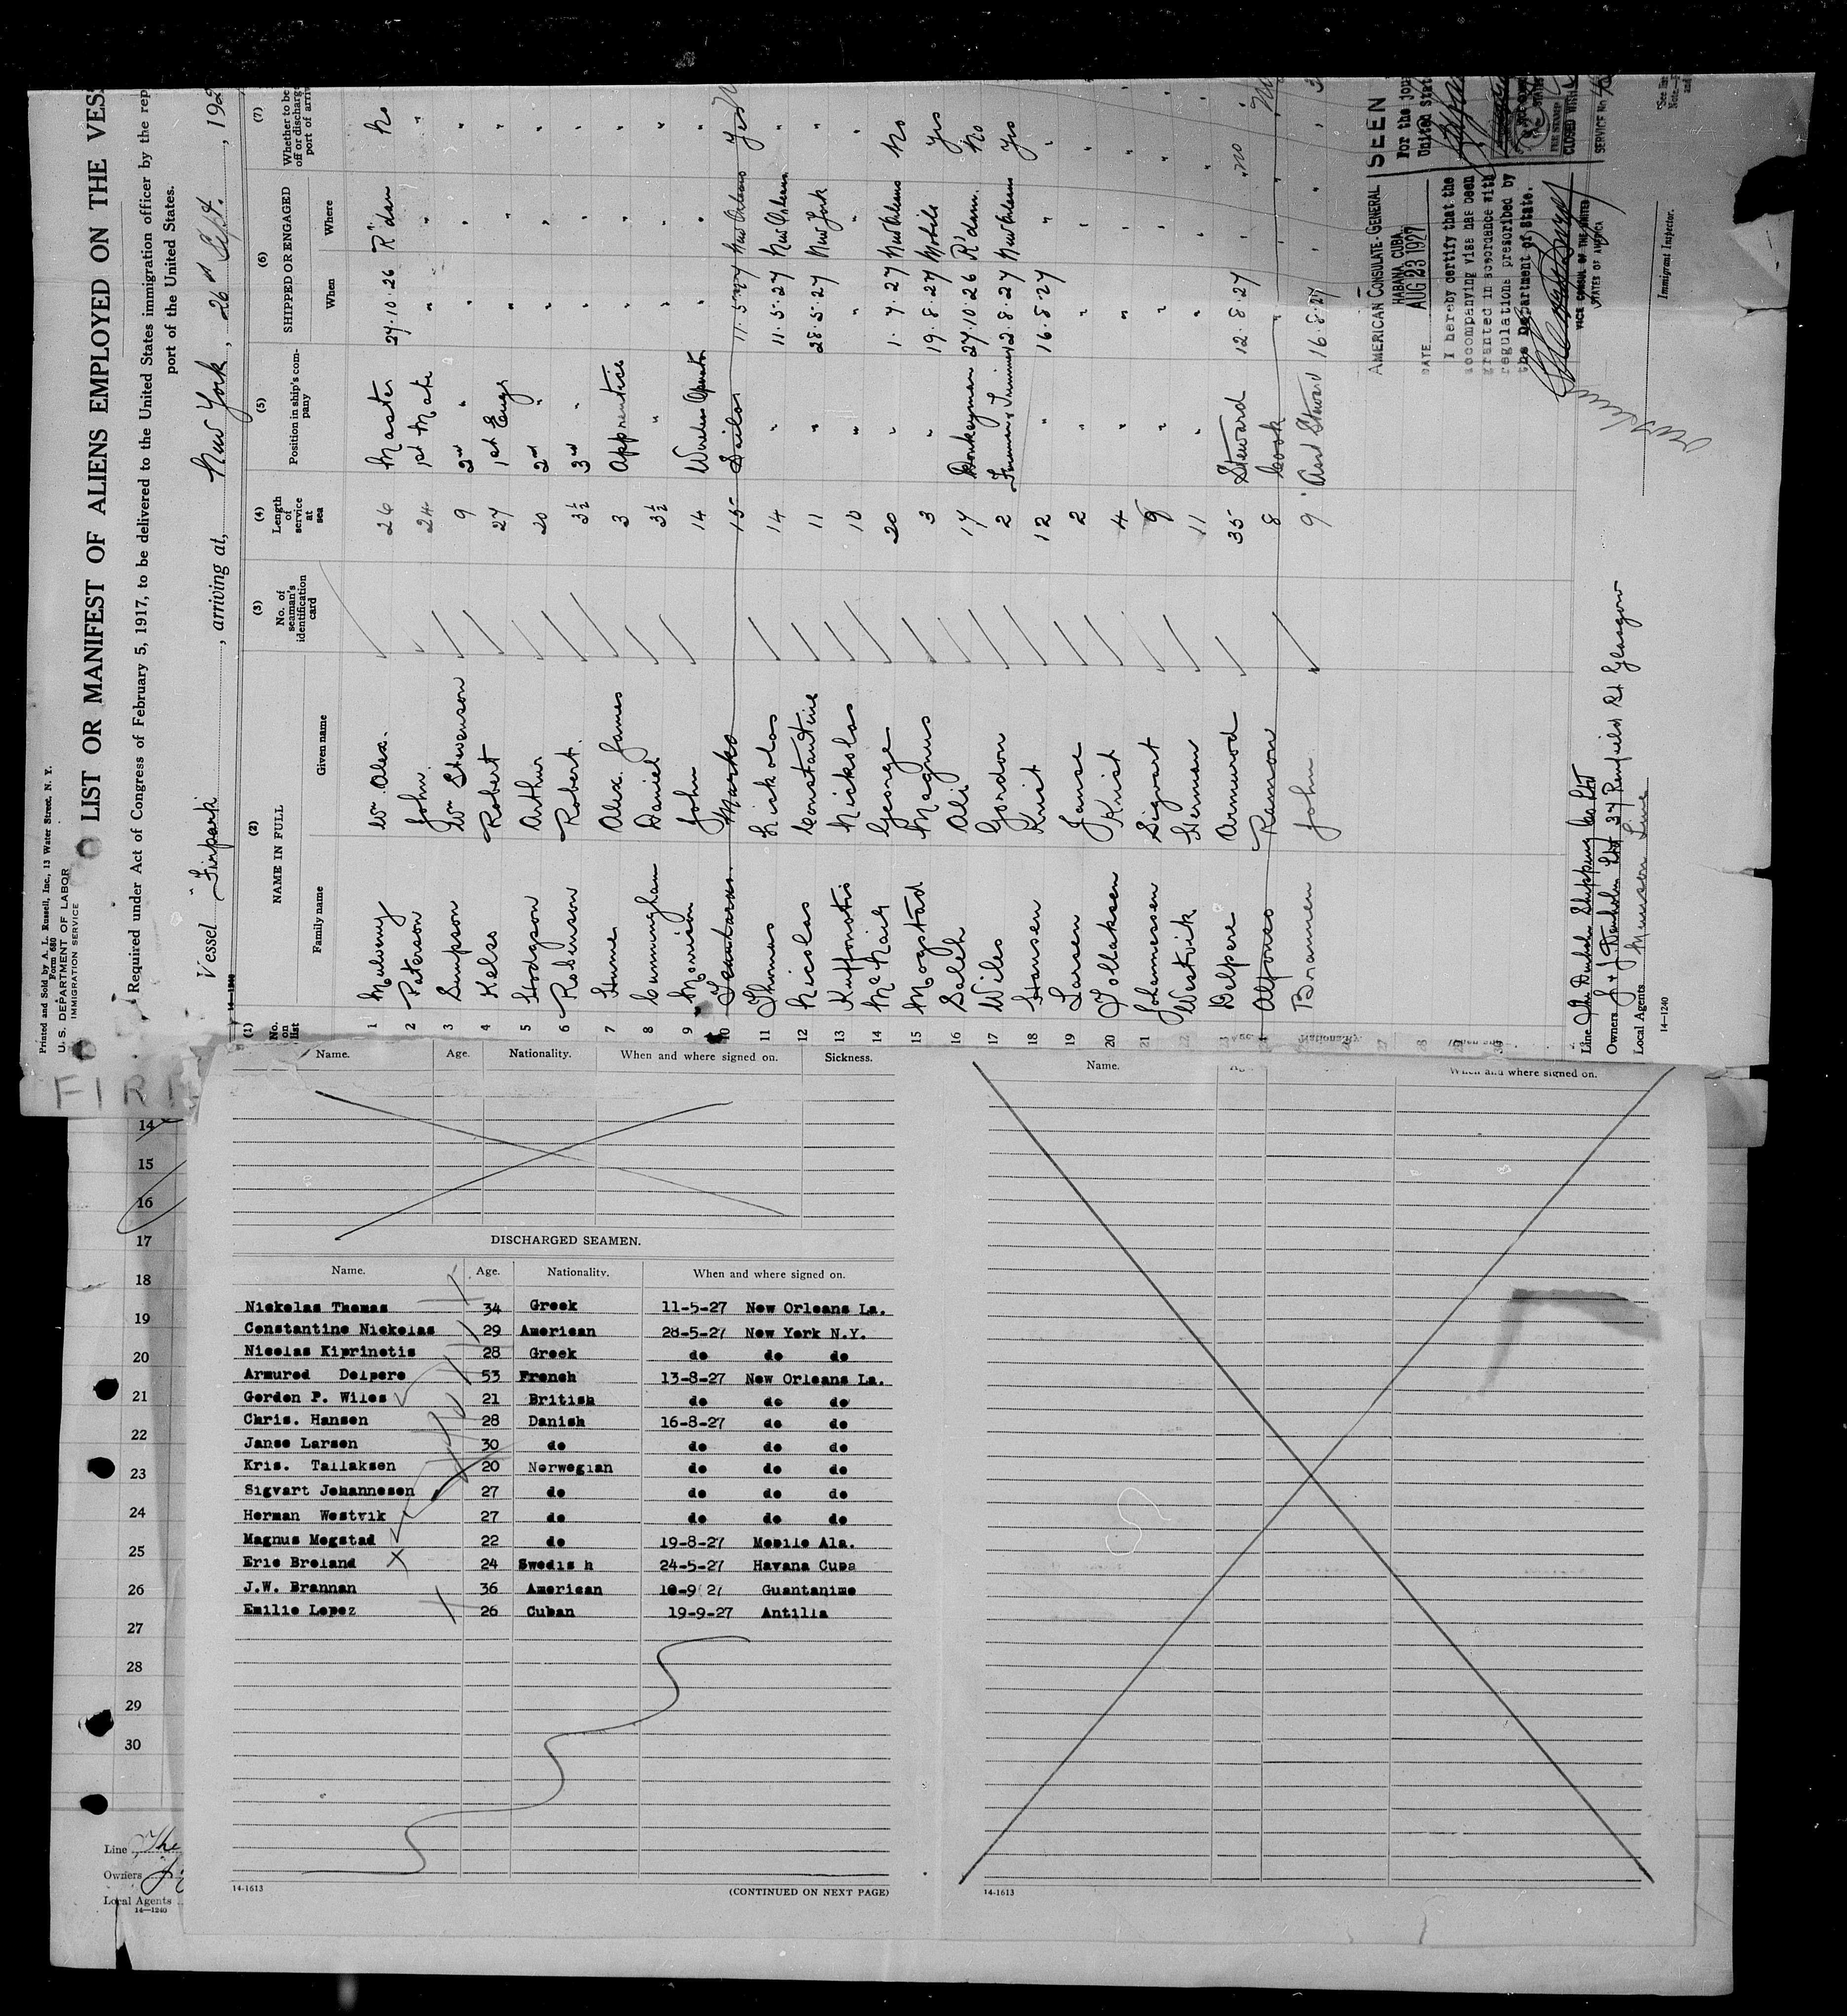 Printed and Sold by A. L. Russell, Inc., 13 Water Street, N. Y.
Form 680
U. S. DEPARTMENT OF LABOR
IMMIGRATION SERVICE
LIST OR MANIFEST OF ALIENS EMPLOYED ON THE VES
Required under Act of Congress of February 5, 1917, to be delivered to the United States immigration officer by the rep
port of the United States.
Vessel "Firpark", arriving at, New York, 26th Sept., 192
14-1240
(1) (2) (3) (4) (5) (6) (7)
No. on list
NAME IN FULL
Family name Given name
No. of seaman's identification card
Length of service at sea
Position in ship's company
SHIPPED OR ENGAGED
When Where
Whether to be off or discharge port of arriv
1 Mulveny Wm. Alex. 26 Master 27.10.26 R'dam No
2 Paterson John. 24 1st Mate " " "
3 Simpson Wm Stevenson 9 2nd " " " "
4 Kelso Robert 27 1st Engr " " "
5 Hodgson Arthur 20 2nd " " " "
6 Robinson Robert. 3½ 3rd " " " "
7 Hume Alex. James 3 Apprentice " " "
8 Cunningham Daniel 3½ " " " "
9 Morrison John 14 Wireless Operator " " "
10 Marko 15 Sailor 11.5.27 New Orleans Yes
11 Thomas Nickolas 14 " 11.5.27 New Orleans "
12 Nicolas Constantine 11 " 28.5.27 New York "
13 Nickolas 10 " " " "
14 McNair George 20 " 1.7.27 New Orleans No
15 Mogstad Magnus 3 " 19.8.27 Mobile Yes
16 Saleh Ali 17 Donkeyman 27.10.26 R'dam. No
17 Wiles Gordon 2 Fireman & Trimmer 12.8.27 New Orleans Yes
18 Hansen Krist 12 " 16.8.27 " "
19 Larsen Janse 2 " " " "
20 Tollaksen Krist 4 " " " "
21 Johannessen Sigvart 8 " " " "
22 Westvik Herman 11 " " " "
23 Delpere Armurod 35 Steward 12.8.27 " no
24 Alfonso Ramon 8 Cook " "
Brannen John 9 Asst Steward 16.8.27 "
27
28
29
30
AMERICAN CONSULATE-GENERAL
HABANA, CUBA.
DATE AUG 23 1927
I hereby certify that the
accompanying visa has been
granted in accordance with
regulations prescribed by
the Department of State.
VICE CONSUL OF THE UNITED
STATES OF AMERICA
SEEN
For the jou
United Stat
FEE STAMP
SERVICE No
Immigrant Inspector.
Line The Denholm Shipping Co Ltd
Owners J & J Denholm Ltd 37 Renfield St Glasgow
Local Agents Munson Line
14-1240
FIR
Name. Age. Nationality. When and where signed on. Sickness.
Name. When and where signed on.
14
15
16
17
18
19
20
21
22
23
24
25
26
27
28
29
30
Line The
Owners J
Local Agents
14-1240
DISCHARGED SEAMEN.
Name. Age. Nationality. When and where signed on.
Nickolas Thomas 34 Greek 11-5-27 New Orleans La.
Constantine Nickolas 29 American 28-5-27 New York N.Y.
Nicolas Kiprinotis 28 Greek do do do
Armured Delpere 53 French 13-8-27 New Orleans La.
Gordon P. Wiles 21 British do do do
Chris. Hansen 28 Danish 16-8-27 do do
Janse Larsen 30 do do do do
Kris. Tallaksen 20 Norwegian do do do
Sigvart Johannesen 27 do do do do
Herman Westvik 27 do do do do
Magnus Mogstad 22 do 19-8-27 Mobile Ala.
Eric Breland 24 Swedis h 24-5-27 Havana Cuba
J.W. Brannan 36 American 10-9 27 Guantanimo
Emilio Lopez 26 Cuban 19-9-27 Antilla
14-1613
(CONTINUED ON NEXT PAGE)
14-1613